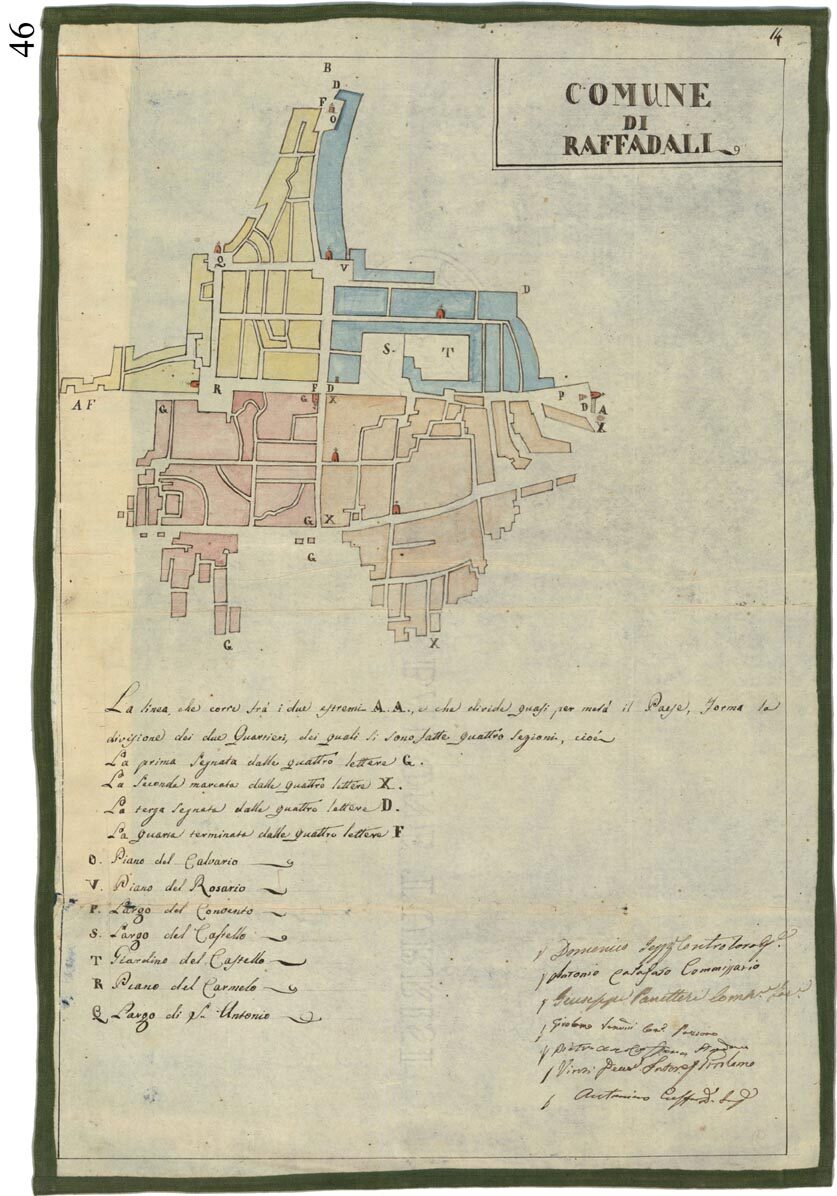 46
14
COMUNE
DI
RAFFADALI
B
D
F
O
Q
V
D
S.
T
R
F
D
P
D
A
X
A F
G
G
X
G
X
G
G
X
La linea, che corre frà i due estremi A.A., e che divide quasi per metà il Paese, forma la
divisione dei due Quartieri, dei quali si sono fatte quattro sezioni, cioè
La prima segnata dalle quattro lettere G.
La seconda marcata dalle quattro lettere X.
La terza segnata dalle quattro lettere D.
La quarta terminata dalle quattro lettere F
O. Piano del Calvario
V. Piano del Rosario
P. Largo del Convento
S. Largo del Castello
T Giardino del Castello
R Piano del Carmelo
Q Largo di S. Antonio
Domenico
Antonio Commissario
Giuseppe Panetteri
Girolamo
Antonino